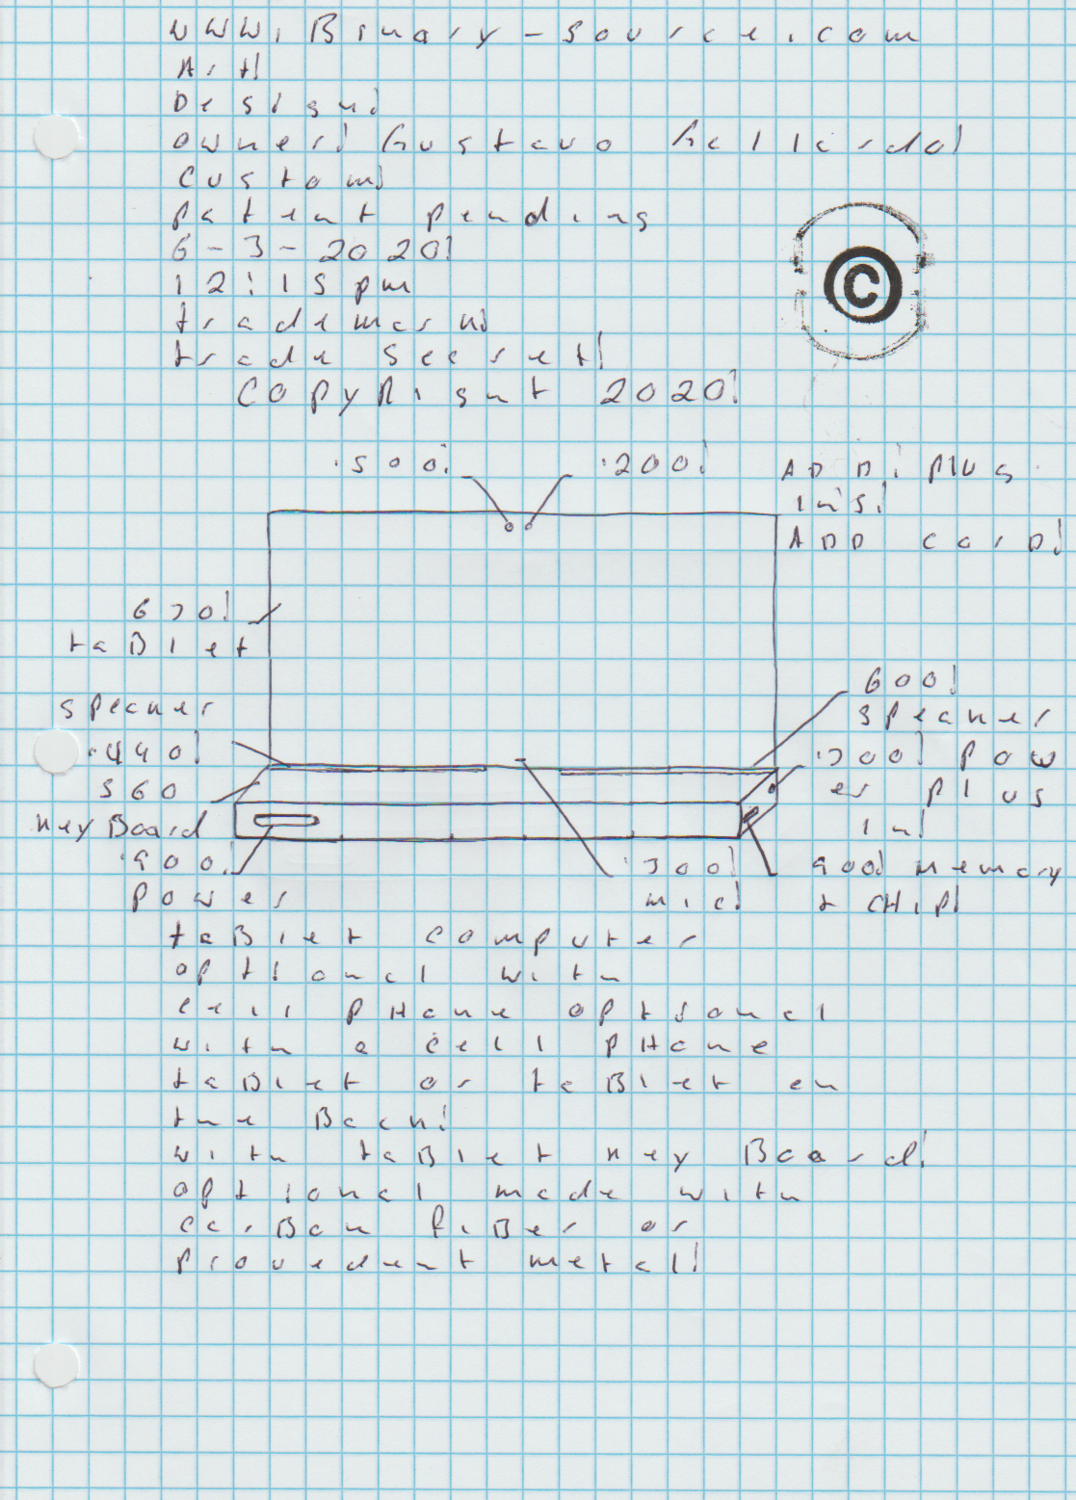 www.Binary-source.com
Art!
Design!
owner! Gustavo Gallardo!
Custom!
patent pending
6-3-2020!
12:15 pm
trademark!
trade secret!
COPYRight 2020!
©
.500!
.200!
ADD! plug
in's!
ADD carD!
670!
taBlet
600!
speaker
speaker
.490!
.700! pow
er plug
in!
560
keyBoard
.900!
power
.300!
mic!
900! memory
+ CHip!
taBlet computer
optional with
cell pHone optional
with a cell pHone
taBlet or taBlet on
the Back!
with taBlet key Board!
optional made with
carBon fiBer or
provedent metal!